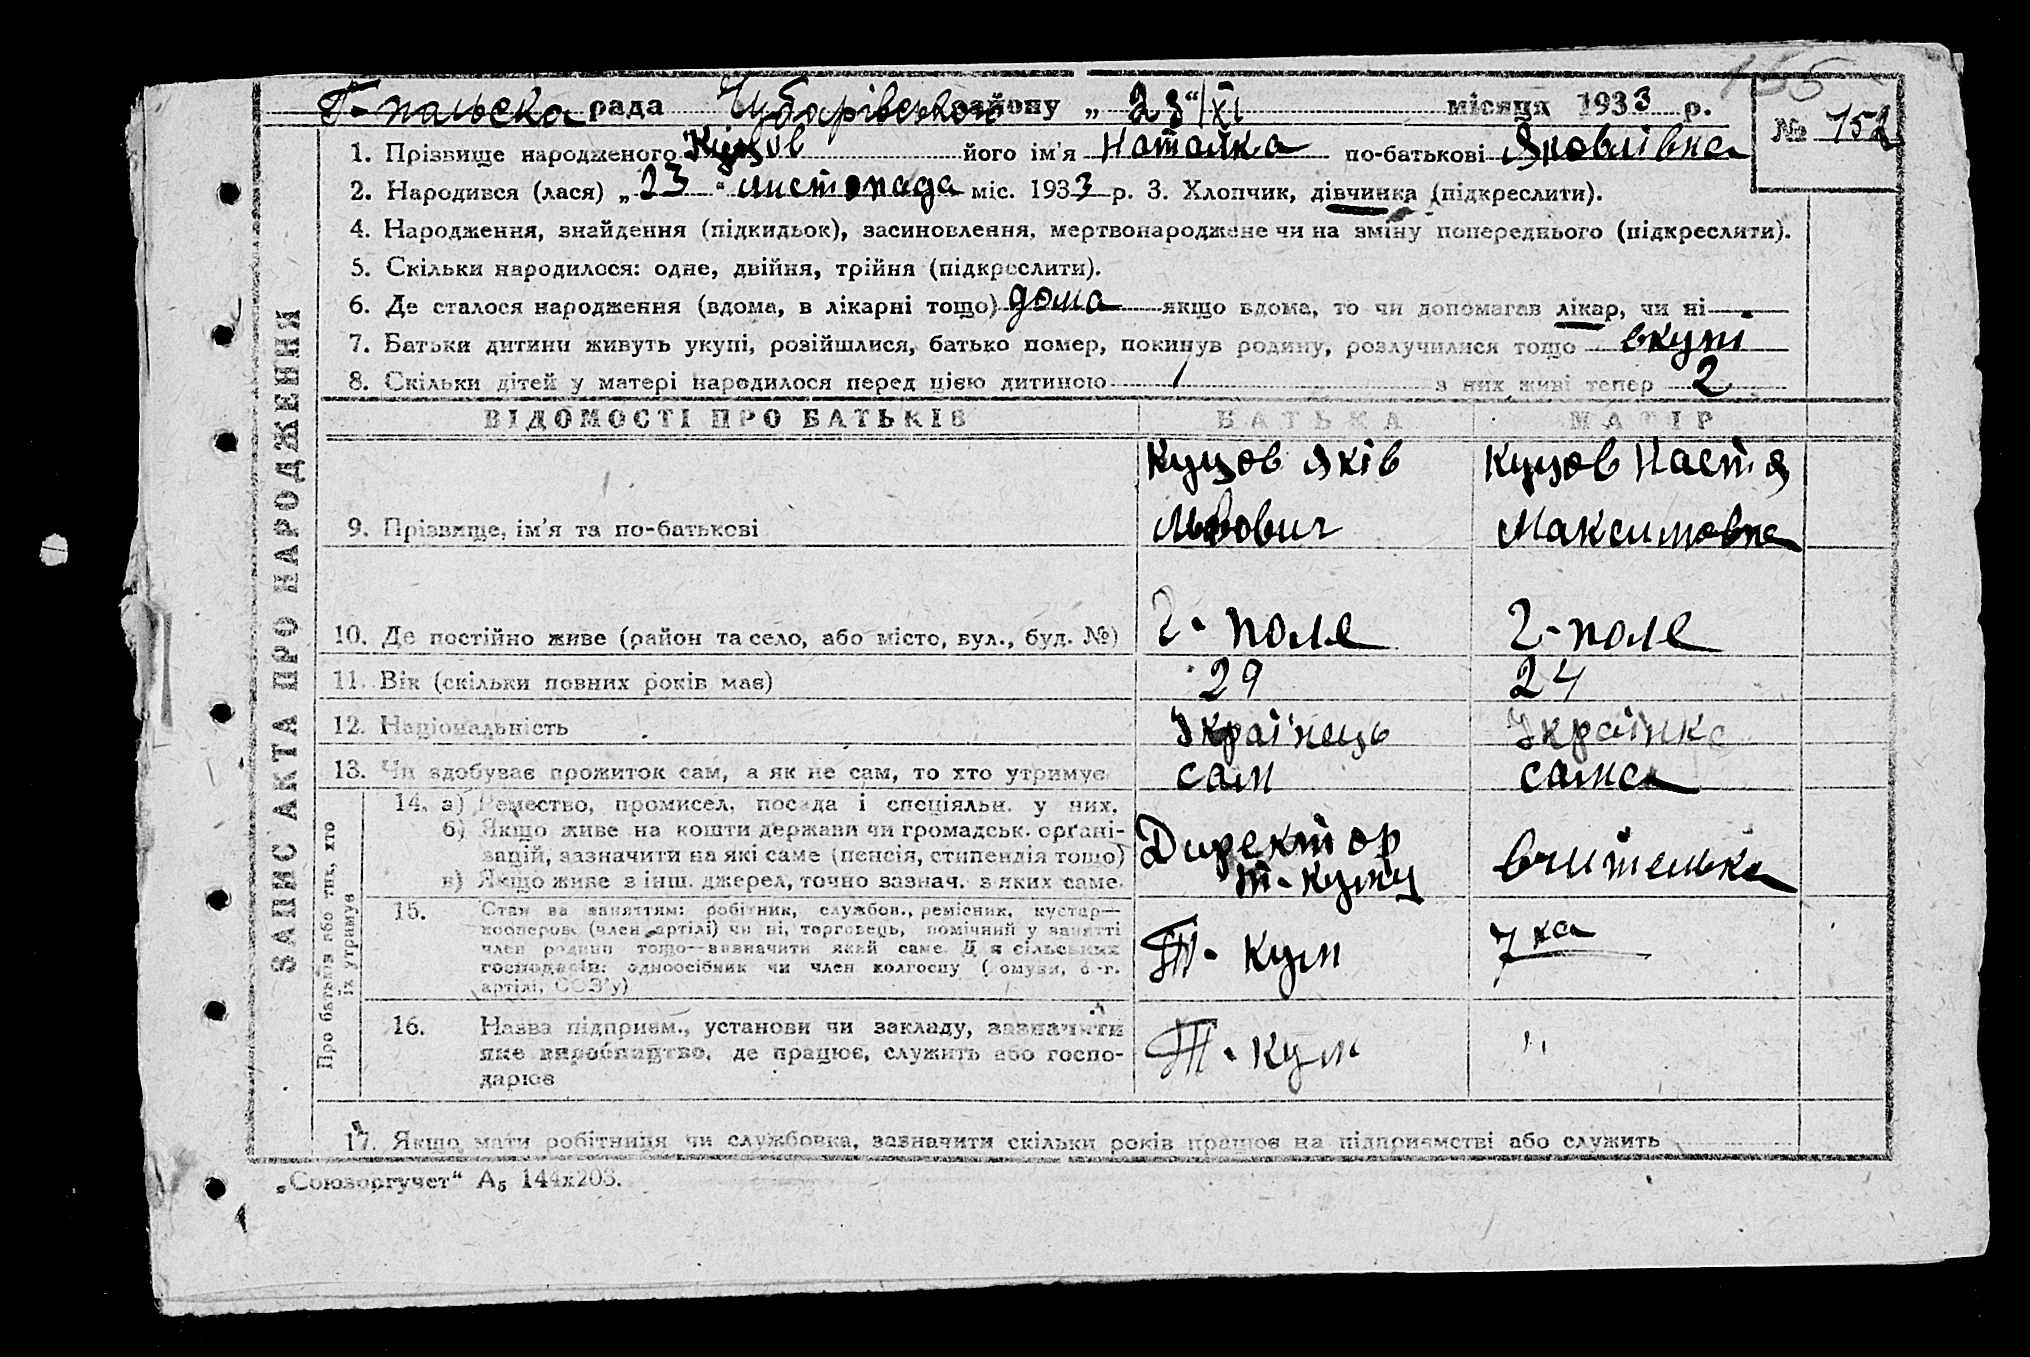 155
Г-Пальська рада Чубарівського району „ 23“/XI місяця 1933 р.
№ 152
1. Прізвище народженого Куцов його ім'я Наталка по-батькові Яковлівна
2. Народився (лася) „ 23 “ листопада міс. 1933 р. 3. Хлопчик, дівчинка (підкреслити).
4. Народження, знайдення (підкидьок), засиновлення, мертвонароджене чи на зміну попереднього (підкреслити).
5. Скільки народилося: одне, двійня, трійня (підкреслити).
6. Де сталося народження (вдома, в лікарні тощо) дома якщо вдома, то чи допомагав лікар, чи ні
7. Батьки дитини живуть укупі, розійшлися, батько помер, покинув родину, розлучилися тощо вкупі
8. Скільки дітей у матері народилося перед цією дитиною 1 з них живі тепер 2
ЗАПИС АКТА ПРО НАРОДЖЕННЯ
ВІДОМОСТІ ПРО БАТЬКІВ БАТЬКА МАТІР
9. Прізвище, ім'я та по-батькові
Куцов Яків
Львович
Куцов Настя
Максимовна
10. Де постійно живе (район та село, або місто, вул., буд. №) Г-поле Г-поле
11. Вік (скільки повних років має) 29 24
12. Національність Українець Українка
13. Чи здобуває прожиток сам, а як не сам, то хто утримує сам сама
Про батьків або тих, хто
їх утримує
14. а) Ремество, промисел, посада і спеціяльн. у них.
б) Якщо живе на кошти держави чи громадськ. орґані-
зацій, зазначити на які саме (пенсія, стипендія тощо)
в) Якщо живе з інш. джерел, точно зазнач. з яких саме.
Директор
вчителька
15. Стан за заняттям: робітник, службов., ремісник, кустар—
кооперов. (член артілі) чи ні, торговець, помічний у занятті
член родини тощо—визначити який саме. Для сільських
господарів: одноосібник чи член колгоспу (комуни, с.-г.
артілі, СОЗ'у)
16. Назва підприєм., установи чи закладу, зазначити
яке виробництво, де працює, служить або госпо-
дарює
"
17. Якщо мати робітниця чи службовка, зазначити скільки років працює на підприємстві або служить
„Союзоргучет“ А5 144х203.